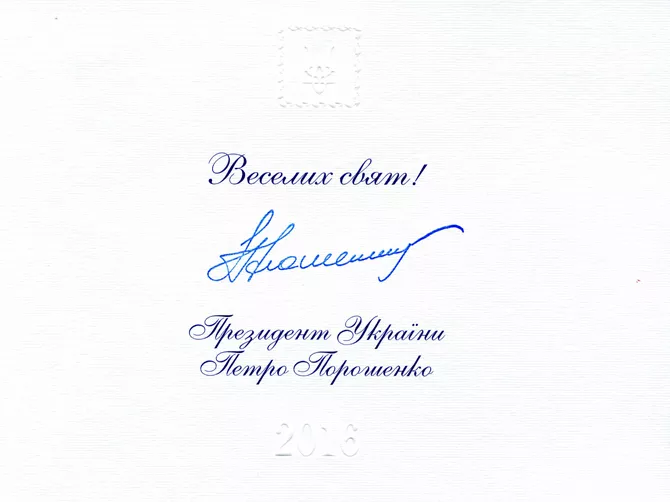 Веселих свят!
Президент України
Петро Порошенко
2016